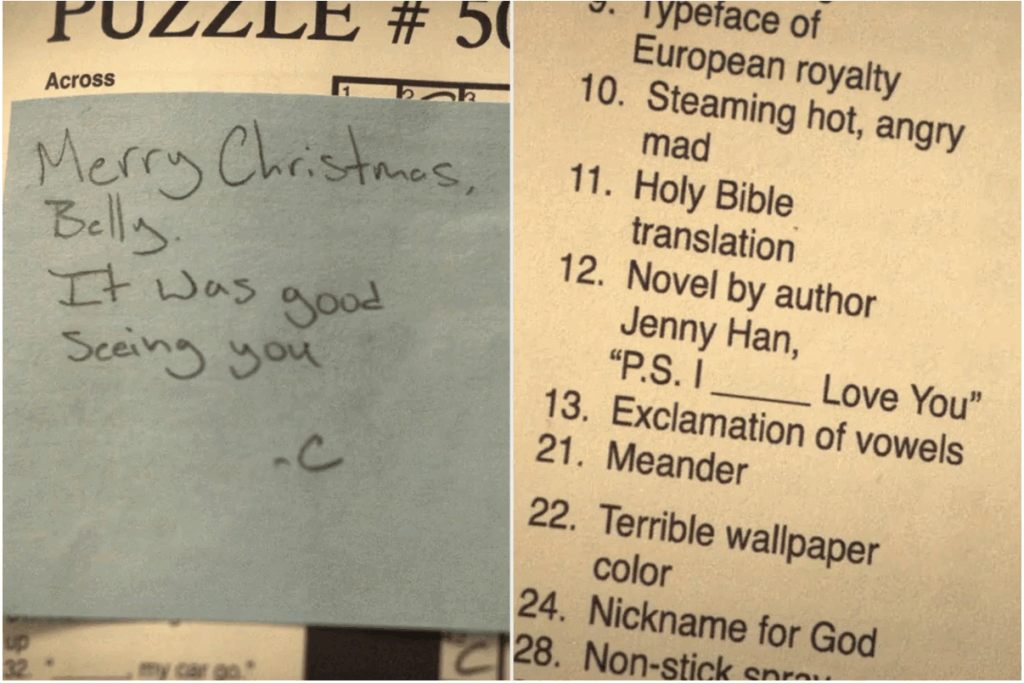 PUZZLE # 50
Across
1 2 3
Merry Christmas,
Belly.
It was good
seeing you
-C
up
32. "_____ my car go."
C
9. Typeface of
European royalty
10. Steaming hot, angry
mad
11. Holy Bible
translation
12. Novel by author
Jenny Han,
“P.S. I _____ Love You”
13. Exclamation of vowels
21. Meander
22. Terrible wallpaper
color
24. Nickname for God
28. Non-stick spray